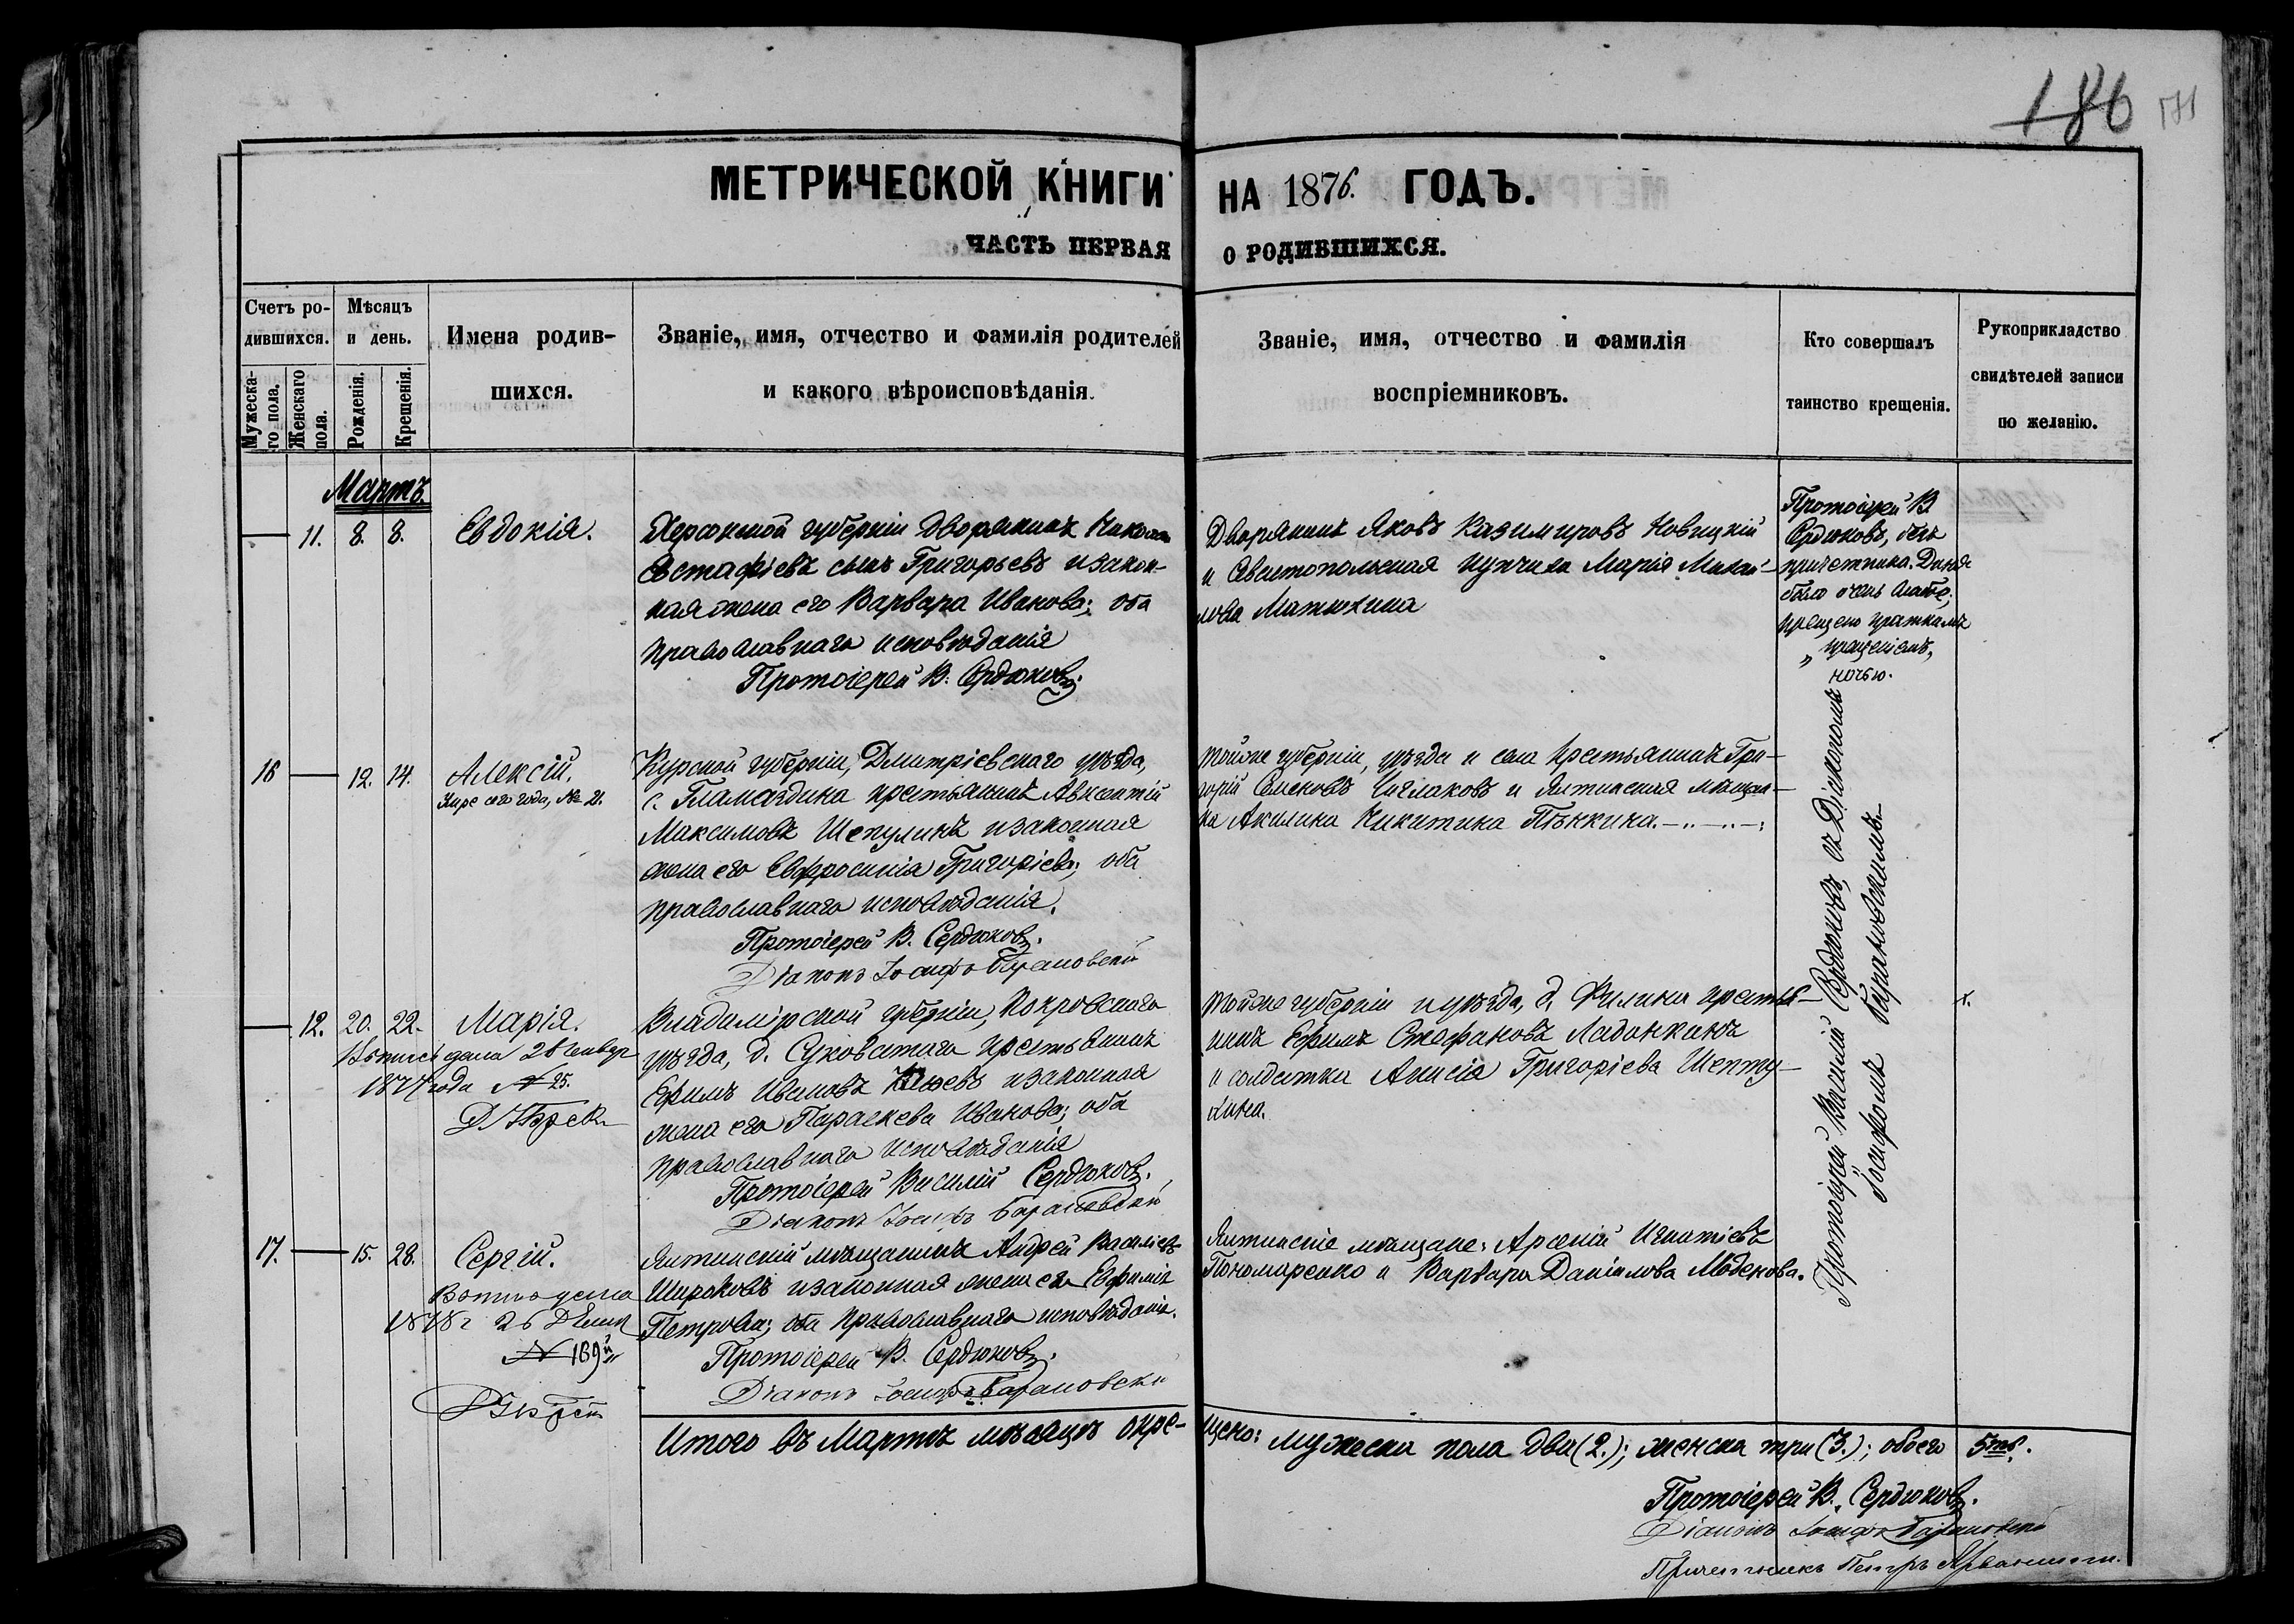 186 171
МЕТРИЧЕСКОЙ КНИГИ НА 1876. ГОДЪ.
ЧАСТЬ ПЕРВАЯ О РОДИВШИХСЯ.
Счетъ ро-
дившихся.
Мужеска-
го пола.
Женскаго
пола.
Мѣсяцъ
и день.
Рожденія.
Крещенія.
Имена родив-
шихся.
Званіе, имя, отчество и фамилія родителей
и какого вѣроисповѣданія.
Званіе, имя, отчество и фамилія
воспріемниковъ.
Кто совершалъ
таинство крещенія.
Рукоприкладство
свидѣтелей записи
по желанію.
Мартъ
11. 8. 8. Евдокія.
Херсонской губерніи дворянинъ Никола
Евстафіевъ сынъ Григорьевъ и закон-
ная жена его Варвара Иванова; оба
православнаго исповѣданія
Протоіерей В. Сердюковъ.
Дворянинъ Яковъ Казимировъ Новицкій
и купчиха Марія Михаи-
лова Матюхина
Протоіерей В.
Сердюковъ, безъ
причетника. Дитя
было очень слабо,
крещено краткимъ
„крещеніемъ„
ночью.
16 12. 14. Алексій.
сего года, № 21.
Курской губерніи, Дмитріевскаго уѣзда,
с. Гламаздина крестьянинъ Авксентій
Максимовъ Шепулинъ и законная
жена его Евфросинія Григоріева; оба
православнаго исповѣданія.
Протоіерей В. Сердюковъ.
Діаконъ Іосифъ Барановскій
Тойже губерніи, уѣзда и села крестьянинъ Гри-
горій Семеновъ Чиглаковъ и Ялтинская мѣщан-
ка Акилина Никитина Пѣнкина.
12. 20. 22. Марія.
Выпись дана 28 Генвар
1877 года № 25.
Владимірской губерніи, Покровскаго
уѣзда, д. Суковатаго крестьянинъ
Ефимъ Ивановъ и законная
жена его Параскева Иванова; оба
православнаго исповѣданія
Протоіерей Василій Сердюковъ.
Діаконъ Іосифъ Барановскій
Тойже губерніи и уѣзда, д. Филина крестья-
нинъ Ефимъ Стефановъ Ладонкинъ
и солдатка Анисія Григоріева Шепту-
хина.
х.
Протоіерей Василій Сердюковъ, съ Діакономъ
Іосифомъ Барановскимъ.
17. 15. 28. Сергій.
дена
26
№ 169й
Ялтинскій мѣщанинъ Андрей Васильевъ
Широковъ и законная жена его Евфимія
Петрова; оба православнаго исповѣданія.
Протоіерей В. Сердюковъ.
Діаконъ Іосифъ Барановскій
Ялтинскіе мѣщане: Арсеній Игнатіевъ
Пономаренко и Варвара Даніилова Моденова.
Итого въ Мартѣ мѣсяцѣ окре-
щено: мужеска пола два (2.); женска три (3.); обоего 5ть.
Протоіерей В. Сердюковъ.
Діаконъ Іосифъ Барановскій
Причетникъ Петръ